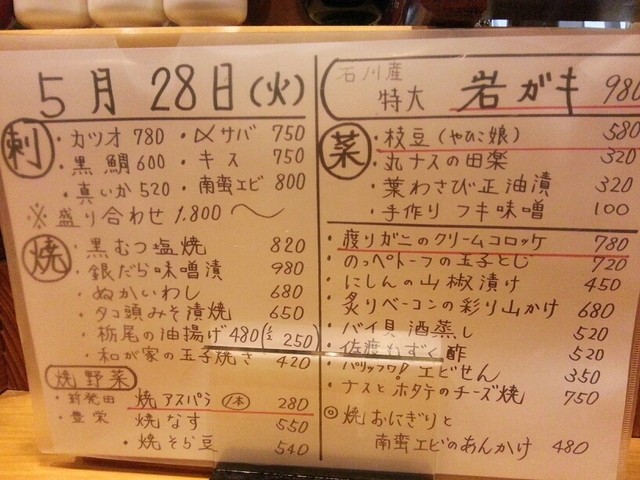 5月28日(火)
刺
・カツオ 780 ・〆サバ 750
・黒鯛 600 ・キス 750
・真いか 520 ・南蛮エビ 800
※盛り合わせ 1,800 〜
焼
・黒むつ塩焼 820
・銀だら味噌漬 980
・ぬかいわし 680
・タコ頭みそ漬焼 650
・栃尾の油揚げ 480 (½ 250)
・和が家の玉子焼き 420
焼野菜
・新発田 焼アスパラ (1本) 280
・豊栄 焼なす 550
・焼そら豆 540
石川産
特大 岩ガキ 980
菜
・枝豆(やひこ娘) 580
・丸ナスの田楽 320
・葉わさび正油漬 320
・手作りフキ味噌 100
・渡りガニのクリームコロッケ 780
・のっぺトーフの玉子とじ 720
・にしんの山椒漬け 450
・炙りベーコンの彩り山かけ 680
・バイ貝酒蒸し 520
・佐渡もずく酢 520
・パリッフワ エビせん 350
・ナスとホタテのチーズ焼 750
◎焼おにぎりと
南蛮エビのあんかけ 480